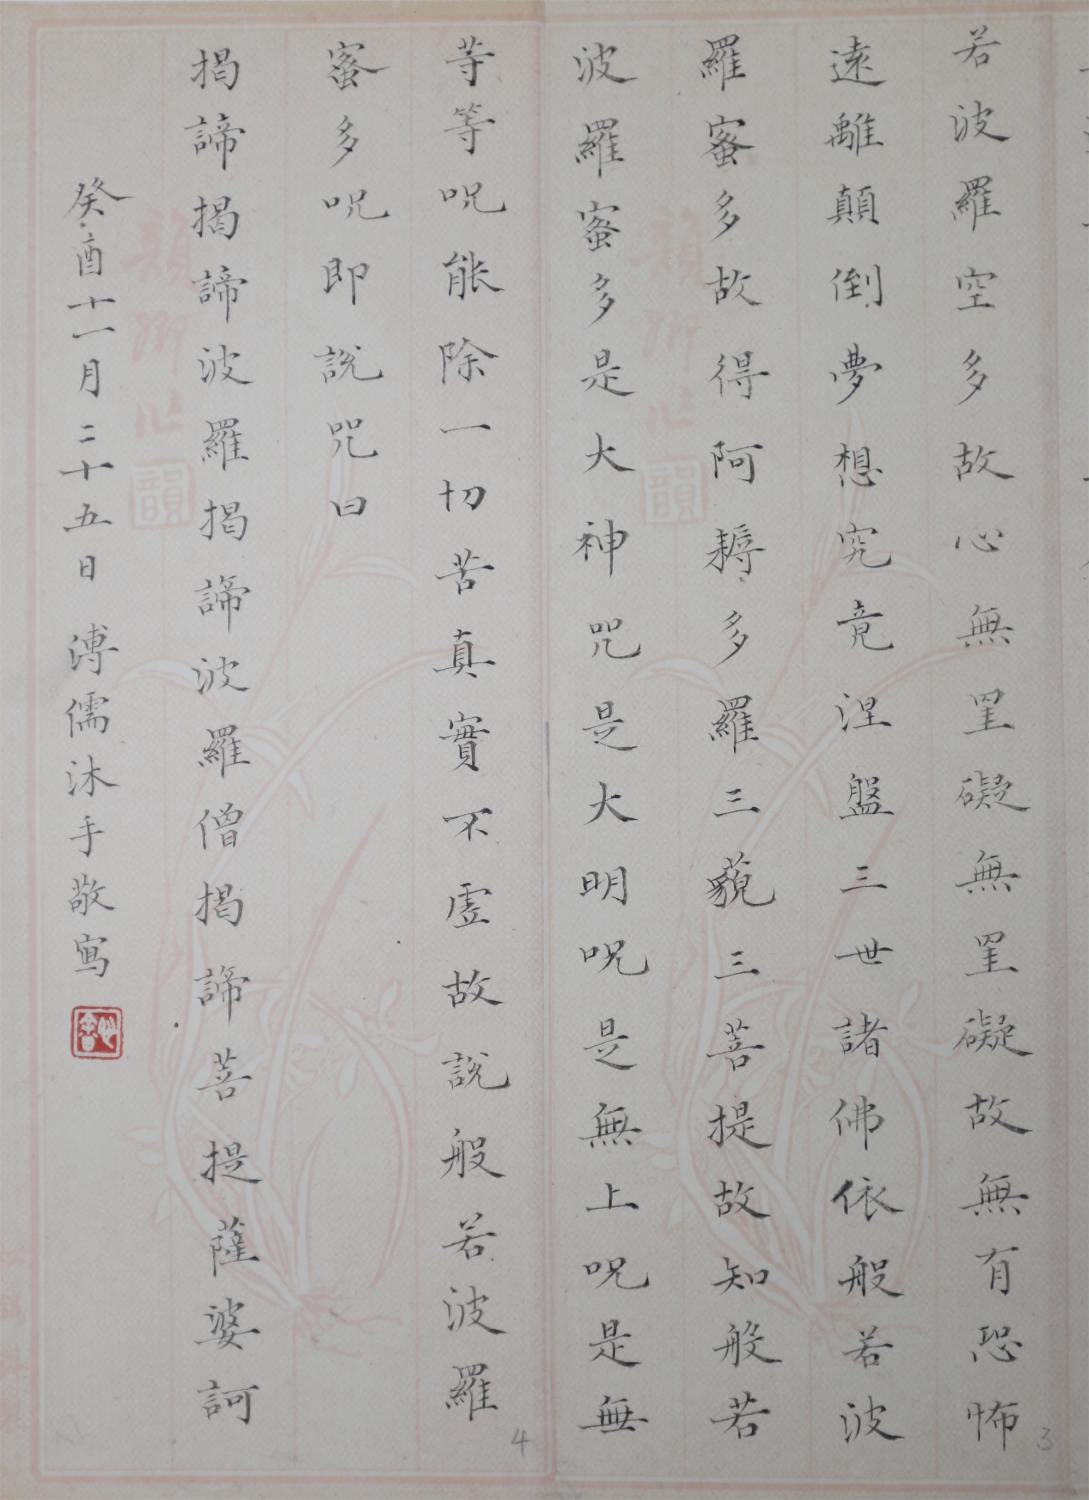 若波羅空多故心無罣礙無罣礙故無有恐怖
遠離顛倒夢想究竟涅盤三世諸佛依般若波
羅蜜多故得阿耨多羅三藐三菩提故知般若
波羅蜜多是大神咒是大明呪是無上呪是無
等等呪能除一切苦真實不虛故說般若波羅
蜜多呪即說咒曰
揭諦揭諦波羅揭諦波羅僧揭諦菩提薩婆訶
癸酉十一月二十五日 溥儒沐手敬寫
3
4